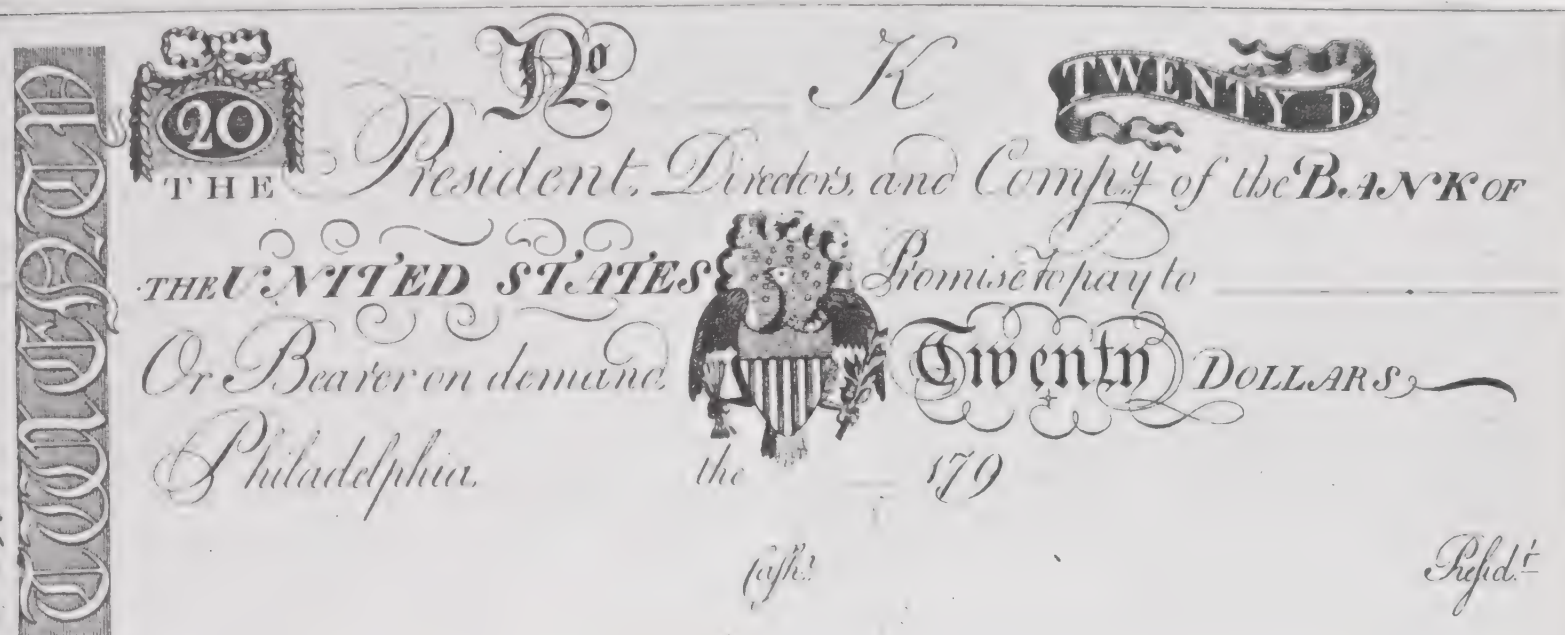 TWENTY
20 No. K TWENTY D.
THE President, Directors, and Compy. of the BANK OF
THE UNITED STATES Promise to pay to
Or Bearer on demand, Twenty DOLLARS,
Philadelphia, the 179
Cashr. Presidt.